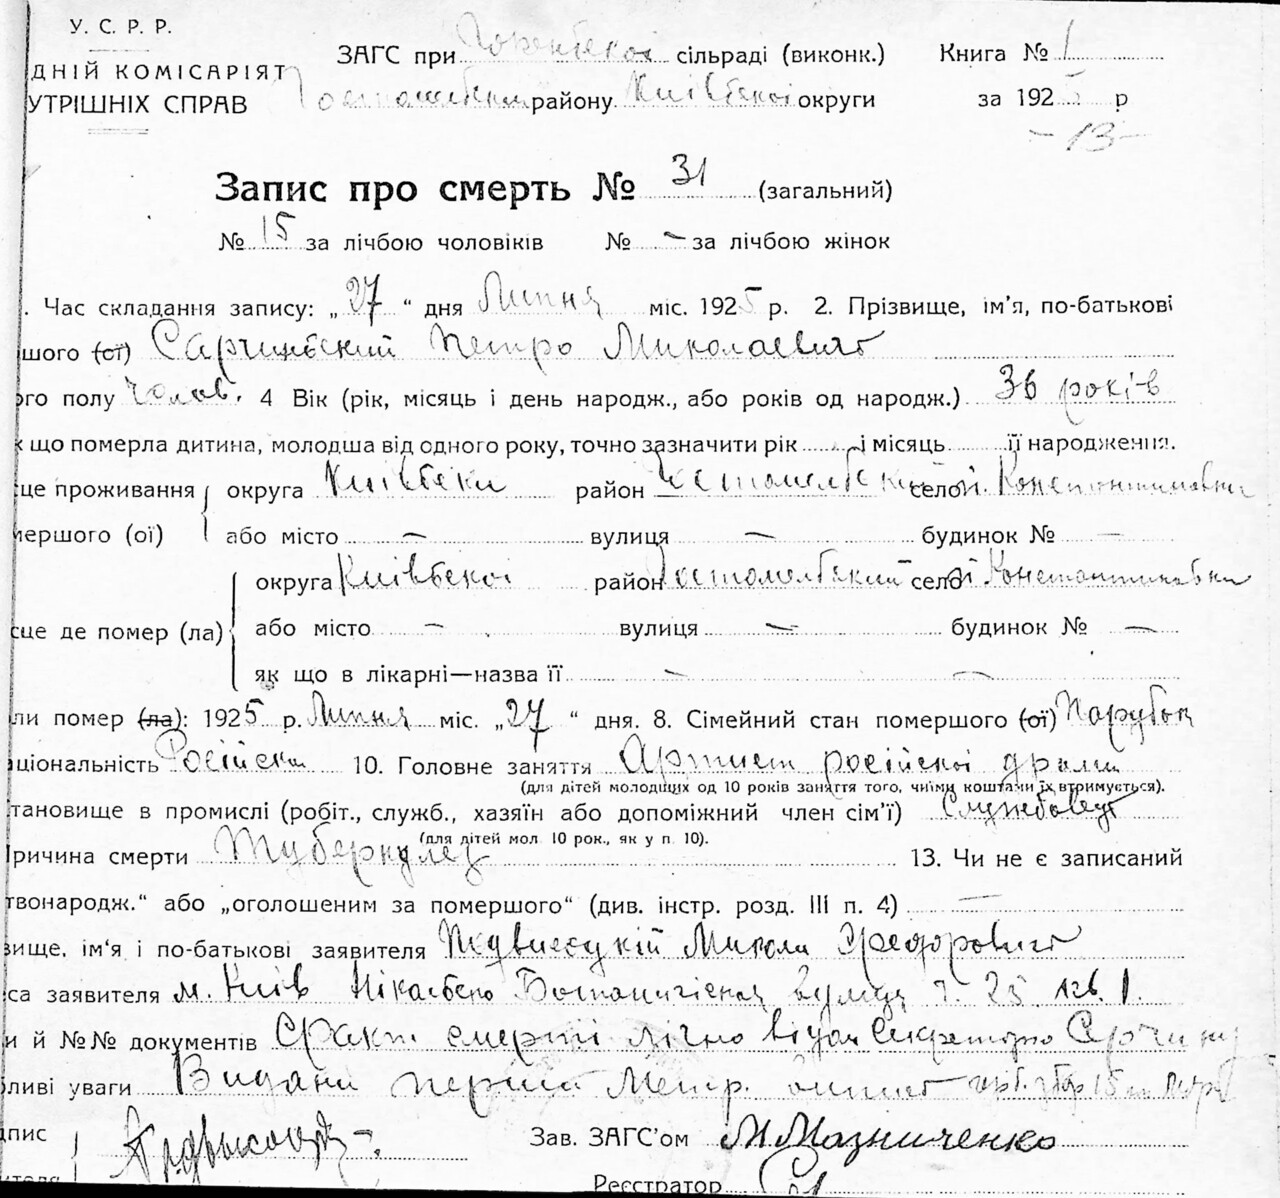 У. С. Р. Р.
ДНІЙ КОМІСАРІЯТ
УТРІШНІХ СПРАВ
ЗАГС при сільраді (виконк.)
Гостомельськ району Київської округи
Книга № 1
за 1925 р
-13-
Запис про смерть № 31 (загальний)
№ 15 за лічбою чоловіків № — за лічбою жінок
. Час складання запису: „27“ дня Липня міс. 1925 р. 2. Прізвище, ім'я, по-батькові
шого (ої) Петро Миколаевич
ого полу Чолов. 4 Вік (рік, місяць і день народж., або років од народж.) 36 років
к що померла дитина, молодша від одного року, точно зазначити рік і місяць її народження.
це проживання округа Київськи район Гостомельский село Константиновки
мершого (ої) або місто — вулиця — будинок № —
округа Київської район Гостомельский село Константиновки
сце де помер (ла) або місто — вулиця — будинок № —
як що в лікарні—назва її — —
ли помер (ла): 1925 р. Липня міс. „27“ дня. 8. Сімейний стан помершого (ої) Парубок
ціональність Російска 10. Головне заняття Артист російскої драми
(для дітей молодщих од 10 років заняття того, чиїми коштами їх втримується).
тановище в промислі (робіт., служб., хазяїн або допоміжний член сім'ї) Службовец
(для дітей мол. 10 рок., як у п. 10).
ричина смерти Туберкулез 13. Чи не є записаний
твонародж.“ або „оголошеним за помершого“ (див. інстр. розд. III п. 4) —
вище, ім'я і по-батькові заявителя Микола Федорович
са заявителя м. Київ Ботанічеська вулиця ч. 25 кв. 1.
и й №№ документів Факт смерті лічно
ливі уваги Видани перша Метр.
дпис Зав. ЗАГС'ом М Мазниченко
ителя Реєстратор